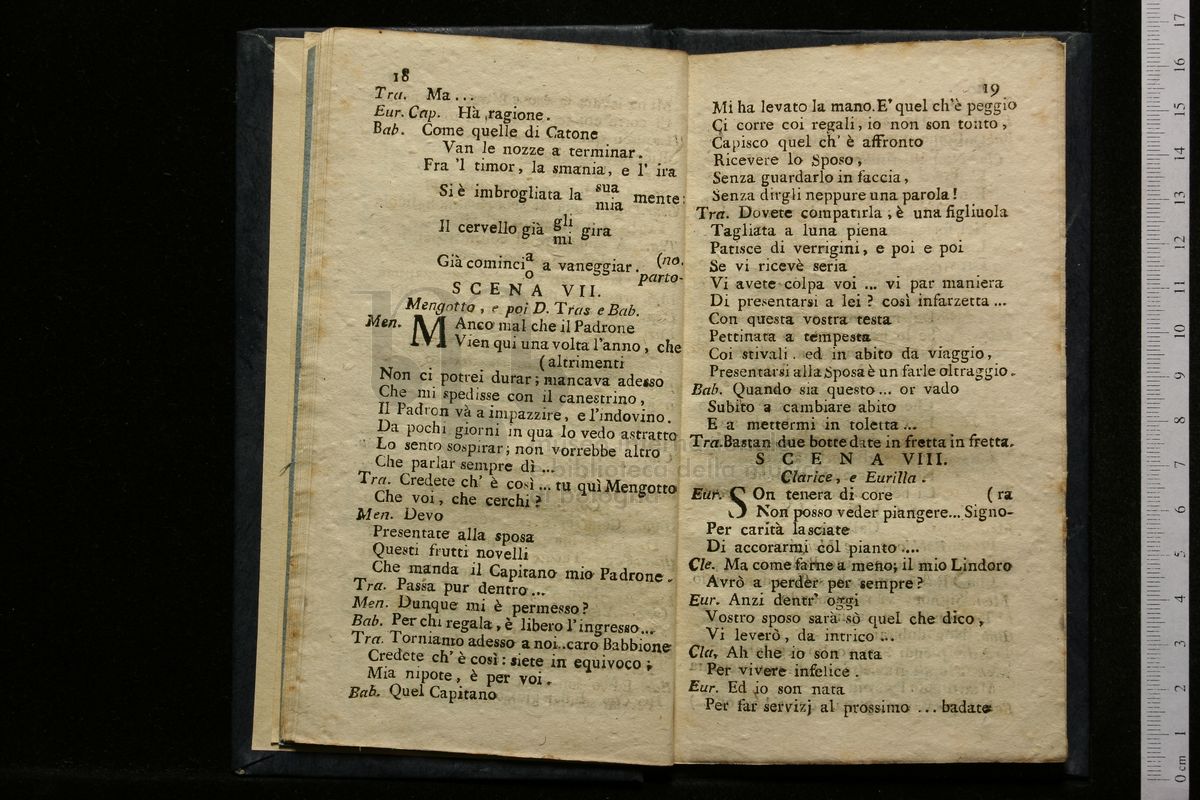 18
Tra. Ma ...
Eur. Cap. Hà ragione.
Bab. Come quelle di Catone
Van le nozze a terminar.
Fra 'l timor, la smania, e l' ira
Si è imbrogliata la sua mente:
mia
Il cervello già gli gira
mi
Già cominci a a vaneggiar. (no.
o parto-
SCENA VII.
Mengotto, e poi D. Tras e Bab.
Men. MAnco mal che il Padrone
Vien qui una volta l'anno, che
(altrimenti
Non ci potrei durar; mancava adesso
Che mi spedisse con il canestrino,
Il Padron và a impazzire, e l'indovino.
Da pochi giorni in qua lo vedo astratto
Lo sento sospirar; non vorrebbe altro
Che parlar sempre di ...
Tra. Credete ch' è così ... tu quì Mengotto
Che voi, che cerchi?
Men. Devo
Presentate alla sposa
Questi frutti novelli
Che manda il Capitano mio Padrone.
Tra. Passa pur dentro ...
Men. Dunque mi è permesso?
Bab. Per chi regala, è libero l'ingresso...
Tra. Torniamo adesso a noi..caro Babbione
Credete ch' è così: siete in equivoco;
Mia nipote, è per voi.
Bab. Quel Capitano
19
Mi ha levato la mano. E' quel ch'è peggio
Ci corre coi regali, io non son tonto,
Capisco quel ch' è affronto
Ricevere lo Sposo,
Senza guardarlo in faccia,
Senza dirgli neppure una parola!
Tra. Dovete compatirla, è una figliuola
Tagliata a luna piena
Patisce di verrigini, e poi e poi
Se vi ricevè seria
Vi avete colpa voi ... vi par maniera
Di presentarsi a lei? così infarzetta ...
Con questa vostra testa
Pettinata a tempesta
Coi stivali. ed in abito da viaggio,
Presentarsi alla Sposa è un farle oltraggio.
Bab. Quando sia questo ... or vado
Subito a cambiare abito
E a mettermi in toletta ...
Tra. Bastan due botte date in fretta in fretta.
SCENA VIII.
Clarice, e Eurilla.
Eur. SOn tenera di core (ra
Non posso veder piangere... Signo-
Per carità lasciate
Di accorarmi còl pianto ....
Cle. Ma come farne a meno; il mio Lindoro
Avrò a perdèr per sempre?
Eur. Anzi dentr' oggi
Vostro sposo sarà sò quel che dico,
Vi leverò, da intrico ...
Cla, Ah che io son nata
Per vivere infelice.
Eur. Ed io son nata
Per far servizj al prossimo ... badate